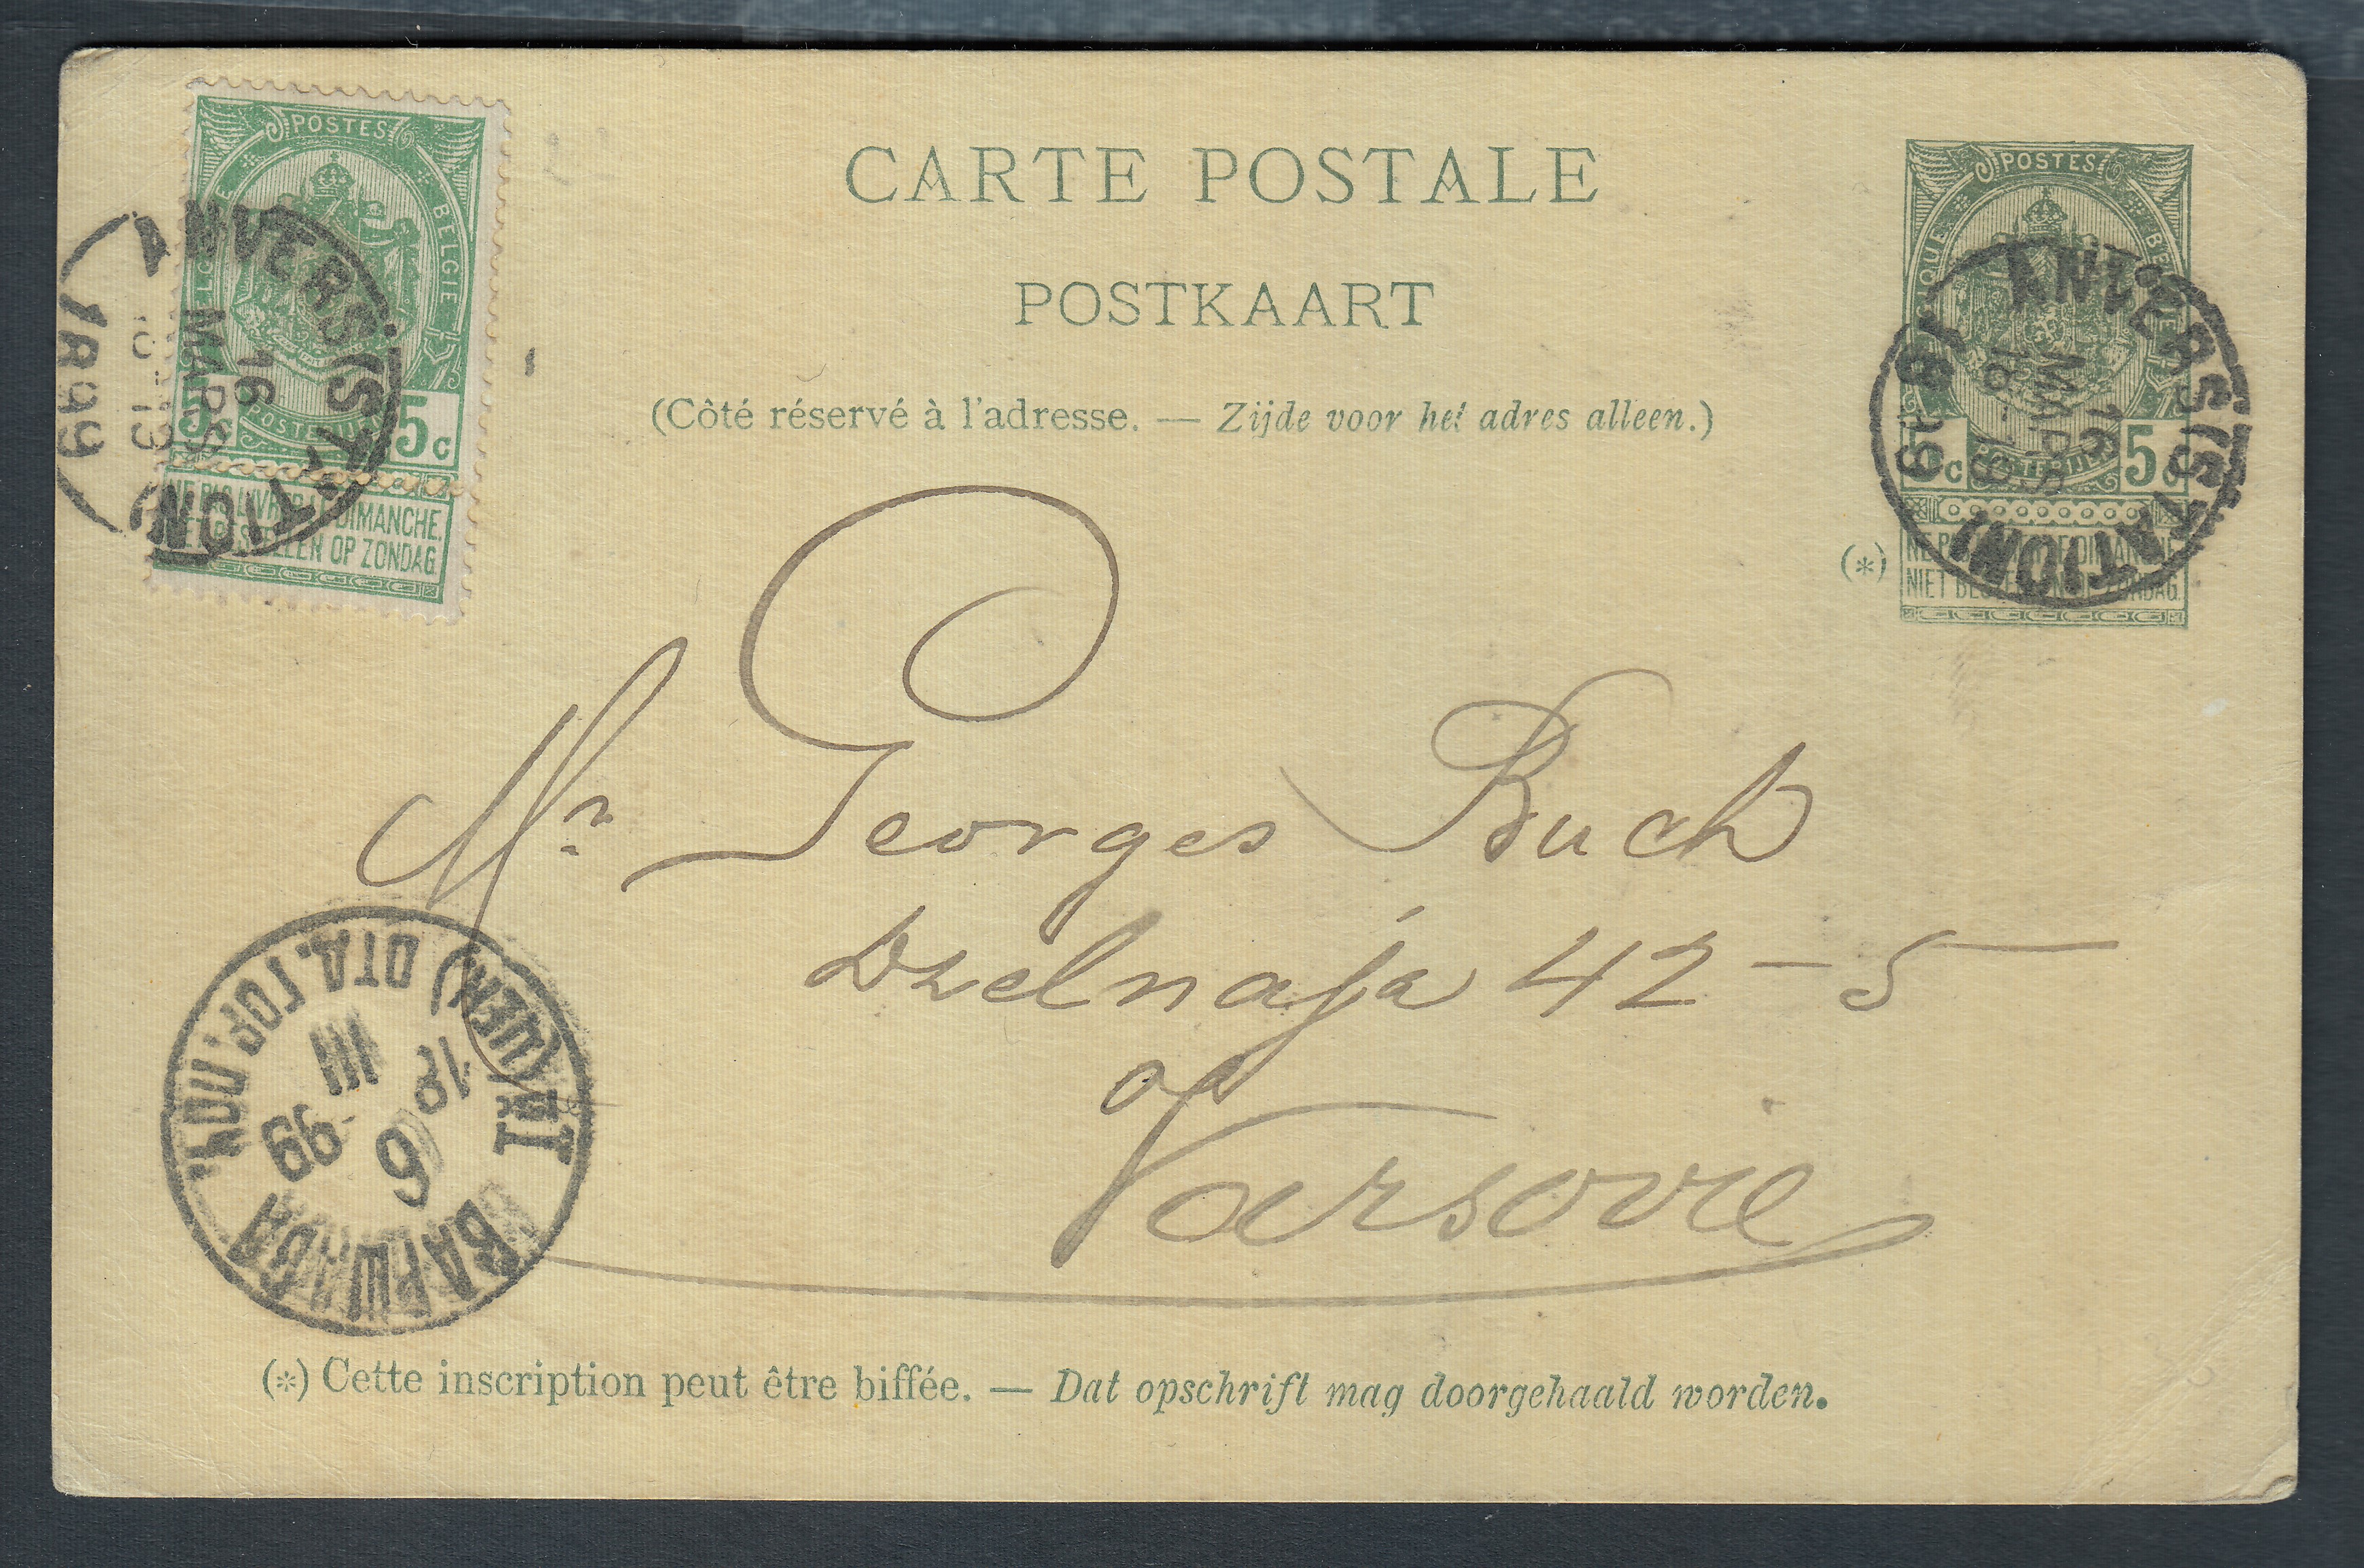 CARTE POSTALE
POSTKAART
(Côté réservé à l'adresse. — Zijde voor het adres alleen.)
POSTES
BELGIE
POSTERIJEN
5c 5c
NE PAS LIVRER LE DIMANCHE.
NIET BESTELLEN OP ZONDAG.
ANVERS (STATION)
16
MARS
1899
POSTES
POSTERIJEN
5c 5c
(*)
NE PAS LIVRER LE DIMANCHE
NIET BESTELLEN OP ZONDAG.
ANVERS (STATION)
16
MARS
18-19
1899
Mr Georges Buch
Dzelnaja 42-5
à
Varsovie
ВАРШАВА
18
III
99
6
(*) Cette inscription peut être biffée. — Dat opschrift mag doorgehaald worden.